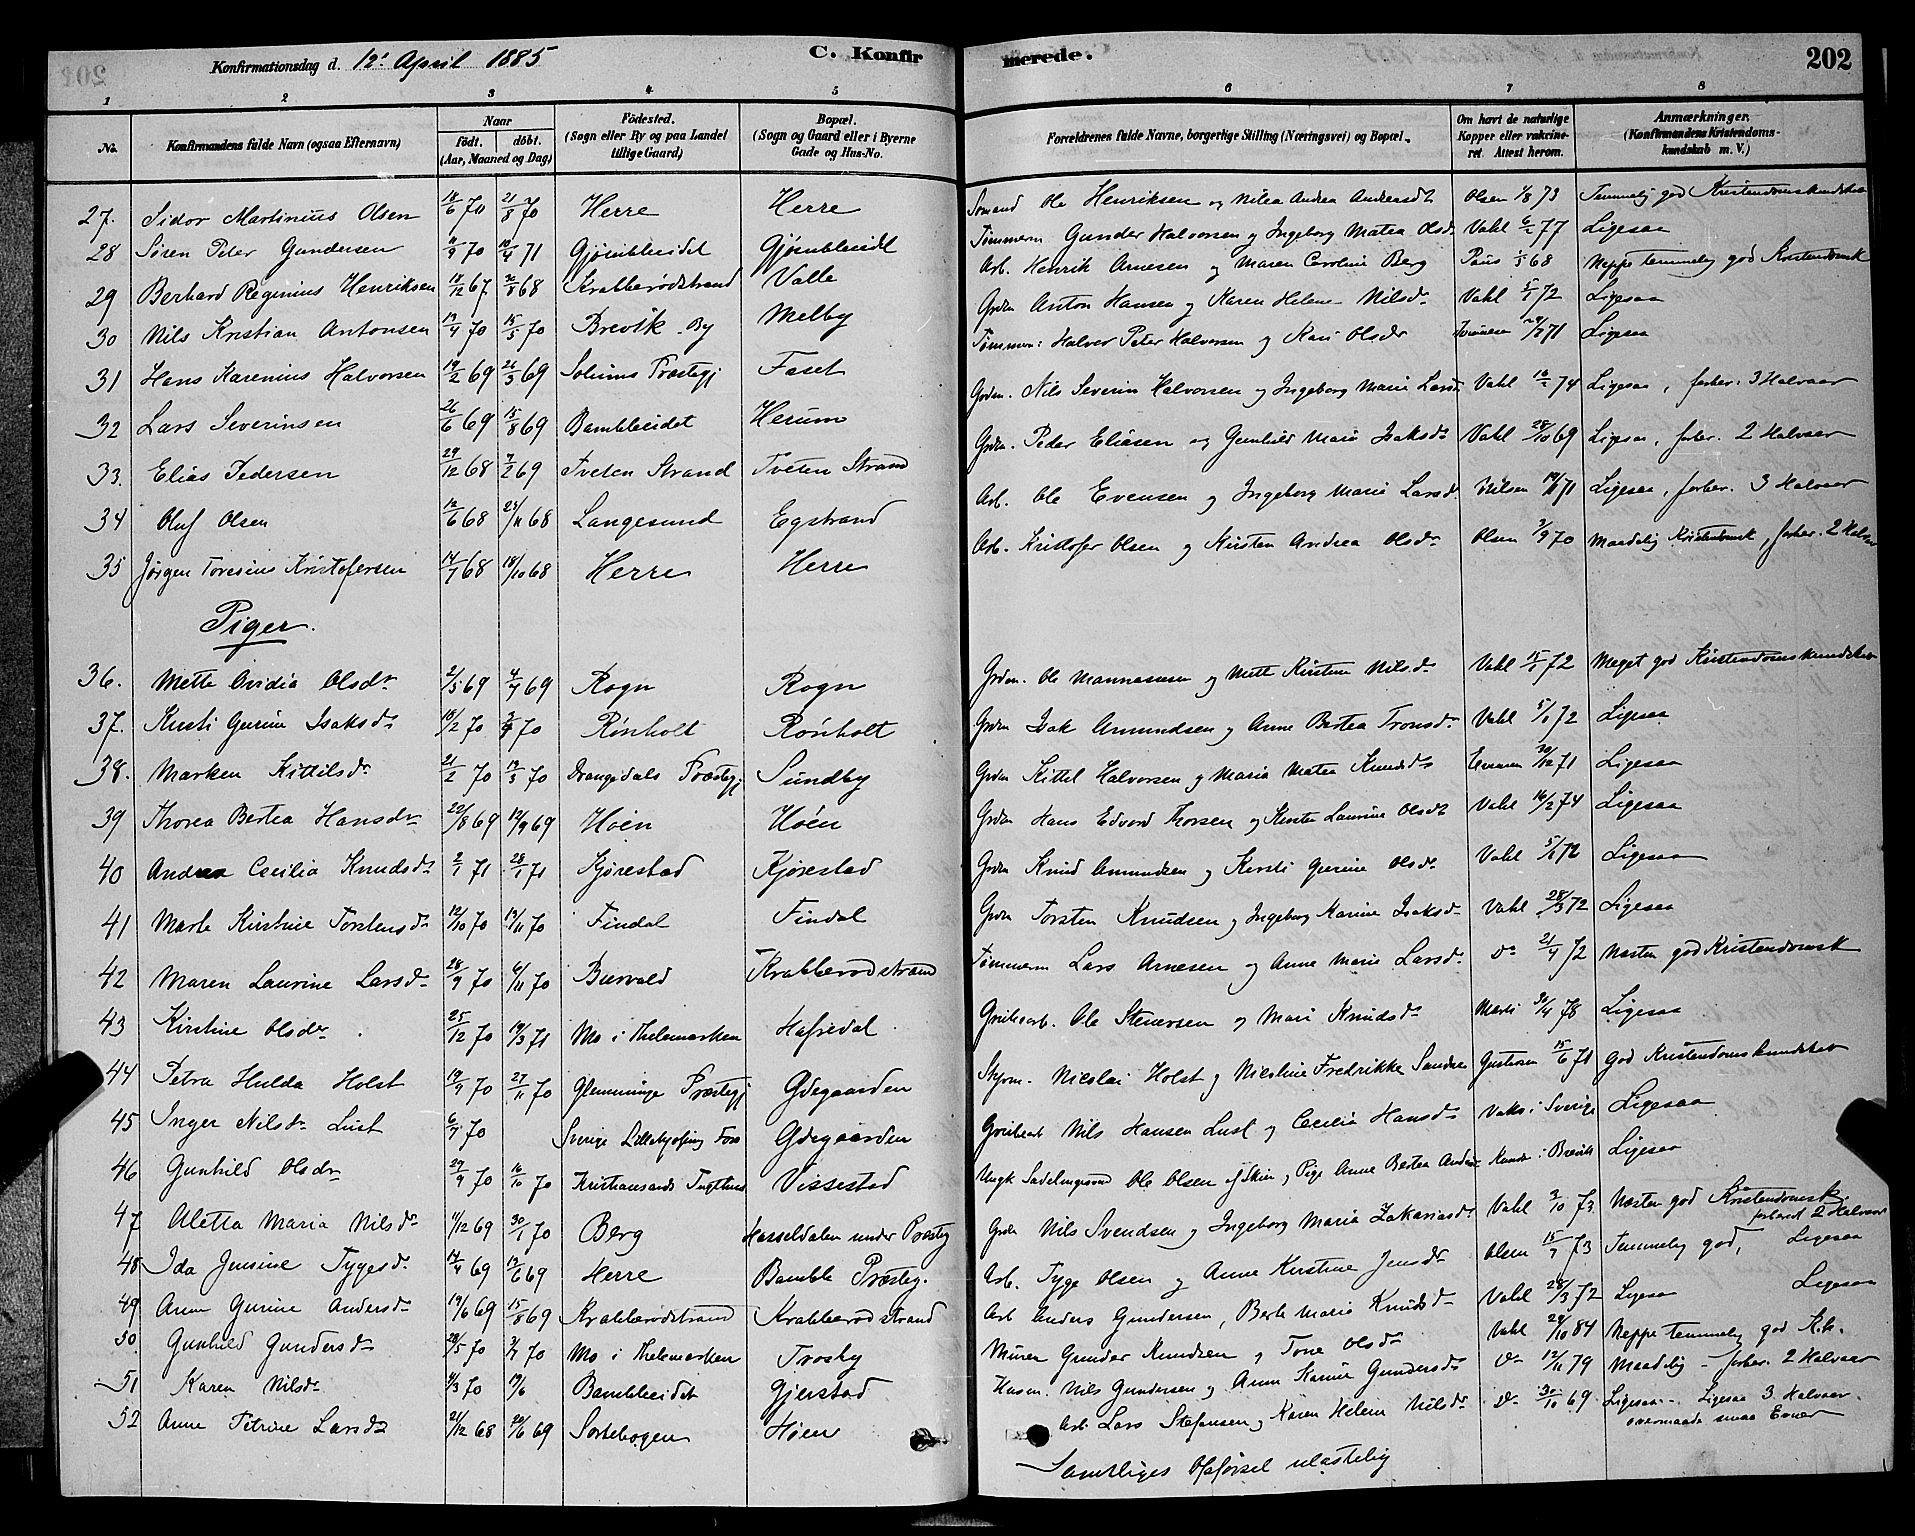 Konfirmationsdag d. 12' April 1885 C. Konfirmerede. 202
1 2 3 4 5 6 7 8
No. Konfirmandens fulde Navn (ogsaa Efternavn) Naar født. døbt. (Aar, Maaned og Dag) Fødested. (Sogn eller By og paa Landet tillige Gaard) Bopæl. (Sogn og Gaard eller i Byerne Gade og Hus-No. Forældrenes fulde Navne, borgerlige Stilling (Næringsvei) og Bopæl. Om havt de naturlige Kopper eller vakcineret. Attest herom. Anmærkninger. (Konfirmandens Kristendomskundskab m. V.)
27. Sidor Martinius Olsen 70 21/8 70 Herre Herre Sømand Ole Henriksen og Nilea Andrea Andreasdt Olsen 1/8 73 Temmelig god Kristendomskundskab
28 Søren Peter Gundersen 70 71 Gjømbleidet Gjømbleidt Tømmerm Gunder Halvorsen og Ingeborg Matea Olsdr Vahl 77 Ligesaa
29 Berhard Reginius Henriksen 67 68 Krabberødstrand Valle Arb. Henrik Arnesen og Maren Caroline Berg Paus 68 Neppe temmelig god Kristendomsk
30 Nils Kristian Antonsen 70 15/5 70 Brevik By Melby Grdm Anton Hansen og Karen Helene Nilsdr Vahl 5/1 72 Ligesaa
31 Hans Karenius Halvorsen 69 69 Solums Præstegj Faset Tømmerm: Halvor Peter Halvorsen og Kari Olsdr 71 Ligesaa
32 Lars Severinsen 26/6 69 15/8 69 Bambleeidet Herum Grdm. Nils Severin Halvorsen og Ingeborg Maria Larsd Vahl 74 Ligesaa, forber. 3 Halvaar
33. Elias Pedersen 29/12 68 7/2 69 Tveten Strand Tveten Strand Grdm. Peder Eliasen og Gunhild Maria Isaksdr Vahl 28/10 69 Ligesaa, forber. 2 Halvaar
34 Oluf Olsen 68 68 Langesund Egstrand Arb. Ole Evensen og Ingeborg Marie Larsd. Nilsen 71 Ligesaa, forber. 3 Halvaar
35 Jørgen Toresius Kristofersen 68 18/10 68 Herre Herre Arb. Kristofer Olsen og Kirsten Andrea Olsdr Olsen 3/9 70 Maadelig Kristendomsk, forber. 2 Halvaar
Piger.
36. Mette Ovidia Olsdr 2/5 69 4/7 69 Rogn Rogn Grdm. Ole Mannasesen og Mette Kirstine Nilsdr Vahl 72 Meget god Kristendomskundskab
37. Kirsti Gurine Isaksdr 18/2 70 70 Rønholt Rønholt Grdm Isak Amundsen og Anne Bertea Tronsdr Vahl 5/1 72 Ligesaa
38. Marken Kittilsdr 21/2 70 70 Drangedals Præstegj Sundby Grdm Kittil Halvorsen og Maria Matea Knudsdr Evensen 30/12 71 Ligesaa
39 Thorea Bertea Hansdr 22/8 69 12/9 69 Høen Høen Grdm Hans Edvard Thorsen og Kirsten Laurine Olsdt Vahl 16/2 74 Ligesaa
40 Andrea Cecilia Knudsdr 2/1 71 28/1 71 Kjørestad Kjørestad Grdm Knud Amundsen og Kirsti Gurine Olsdr Vahl 72 Ligesaa
41 Marte Kirstine Torstensdr 12/10 70 13/11 70 Findal Findal Grdm Torsten Knudsen og Ingeborg Karine Isaksdr Vahl 28/3 72 Ligesaa
42 Maren Laurine Larsdr 28/9 70 6/11 70 Buvald Krabberødstrand Tømmerm Lars Arnesen og Anne Marie Larsdr do 21/4 72 Næsten god Kristendomsk
43 Kirstine Olsdr 25/12 70 19/3 71 Mo i Thelemarken Hafredal Grubearb. Ole Stenersen og Mari Knudsdr 30/4 78 Ligesaa
44 Petra Hulda Holst 19/9 70 27/11 70 Glemminge Præstegj Ødegaarden Styrm. Nicolai Holst og Nicoline Fredrikke Gustavsen 15/6 71 God Kristendomskundskab
45 Inger Nilsdr Lust 6/7 70 Sverige Ødegaarden Grubearb Nils Hansen Lust og Cecilia Hansdr Vaks i Sverige Ligesaa
46 Gunhild Olsdr 29/9 70 16/10 70 Kristiansands Tugthus Vissestad Ungk Sadelmagersvend Ole Olsen af Skien og Pige Anne Bertea Brevik Ligesaa
47 Aletta Maria Nilsdr 11/12 69 30/1 70 Berg Hasseldalen under Præsteg Grdm Nils Svendsen og Ingeborg Maria Zakariasdr Vahl 2/10 73 Næsten god Kristendomsk, forbered 2 Halvaar
48 Ida Jensine Tygesdr 69 69 Herre Bamble Præsteg. Arb. Tyge Olsen og Anne Kirstine Jensdr Olsen 15/7 73 Temmelig god, Ligesaa
49 Anne Gurine Andersdr 19/6 69 15/8 69 Krabberødstrand Krabberødstrand Arb Anders Gundersen, Berte Maria Knudsdr Vahl 28/3 72 Ligesaa Ligesaa
50. Gunhild Gundersdr 28/5 70 70 Mo i Thelemarken Trosby Murer Gunder Knudsen og Tone Olsdr Vahl 24/10 84 Neppe temmelig god K.k.
51 Karen Nilsdr 70 Bambleeidet Gjerstad Husm. Nils Gundersen og Anne Karine Gundersdr do 12/11 79 Maadelig - forber. 2 Halvaar
52 Anne Petrine Larsdr 21/12 68 69 Sortebogen Høen Arb Lars Stefansen og Karen Helene Nilsdr do 30/10 69 Ligesaa - Ligesaa 3 Halvaar.
overmaade smaa Evner
Samtliges Opførsel ulastelig